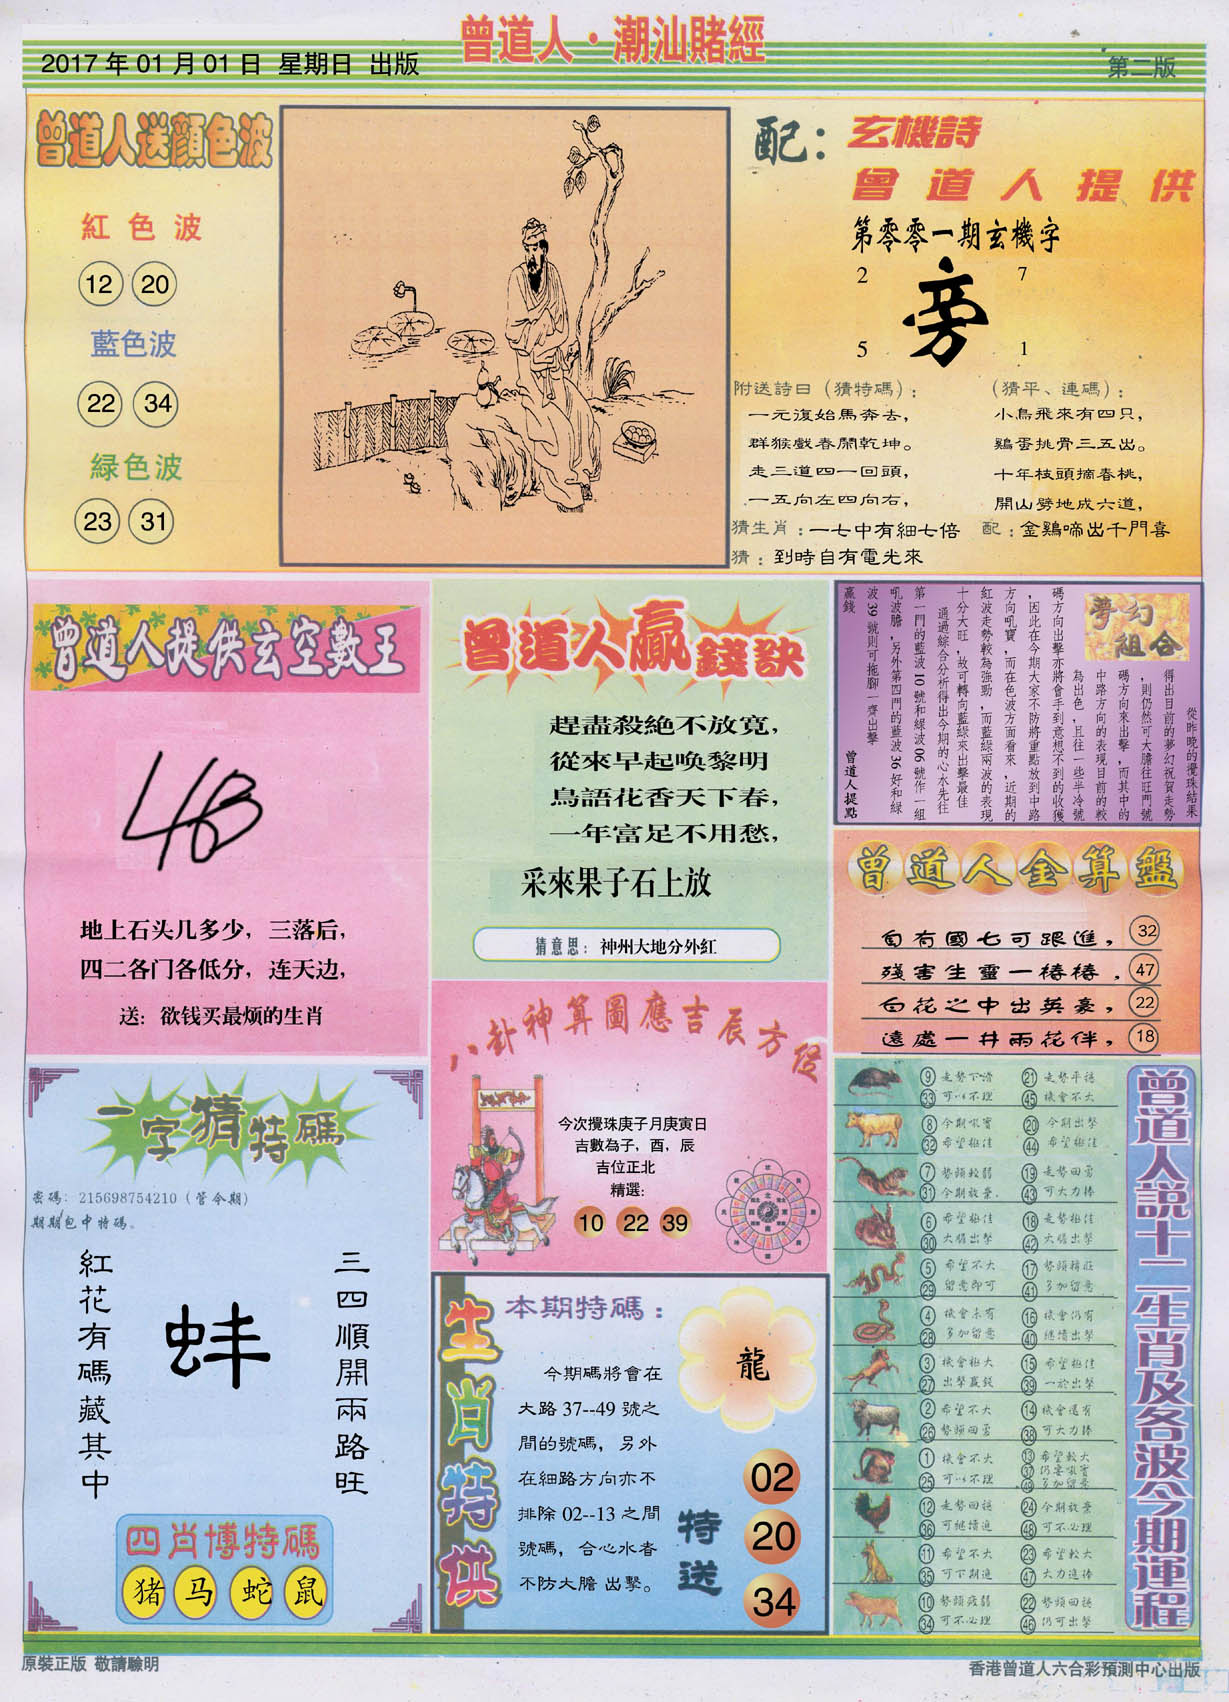 曾道人·潮汕賭經
2017年01月01日 星期日 出版
第二版
曾道人送顔色波
紅色波
12 20
藍色波
22 34
緑色波
23 31
配：玄機詩
曾道人提供
第零零一期玄機字
2 7
旁
5 1
附送詩曰（猜特碼）：
一元復始馬奔去，
群猴戲春鬧乾坤。
走三道四一回頭，
一五向左四向右，
（猜平、連碼）：
小鳥飛來有四只，
鷄蛋挑骨三五出。
十年枝頭摘春桃，
開山劈地成六道，
猜生肖：一七中有細七倍
配：金鷄啼出千門喜
猜：到時自有電光來
曾道人提供玄空數王
地上石头几多少，三落后，
四二各门各低分，连天边，
送：欲钱买最烦的生肖
曾道人贏錢訣
趕盡殺絶不放寬，
從來早起唤黎明
鳥語花香天下春，
一年富足不用愁，
采來果子石上放
猜意思：神州大地分外紅
夢幻組合
從昨晚的攪珠結果
得出目前的夢幻祝賀走勢
，則仍然可大膽往旺門號
碼方向來出擊，而其中的
中路方向的表現目前的較
為出色，且往一些半冷號
碼方向出擊亦將會手到意想不到的收獲
，因此在今期大家不防將重點放到中路
方向吼寶，而在色波方面看來，近期的
紅波走勢較為強勁，而藍緑兩波的表現
十分大旺，故可轉向藍緑來出擊最佳
通過綜合分析得出今期的心水先往
第一門的藍波10號和緑波06號作一組
吼波膽，另外第四門的藍波36好和緑
波39號則可拖腳一齊出擊
贏錢
曾道人提點
曾道人金算盤
自有國七可跟進， 32
殘害生靈一樁樁， 47
白花之中出英豪， 22
遠處一井兩花伴， 18
一字猜特碼
密碼：215698754210（管今期）
期期包中特碼。
三四順開兩路旺
蚌
紅花有碼藏其中
四肖博特碼
猪 马 蛇 鼠
八卦神算圖應吉辰方位
今次攪珠庚子月庚寅日
吉數為子，酉，辰
吉位正北
精選：
10 22 39
生肖特供
本期特碼：
龍
今期碼將會在
大路37--49號之
間的號碼，另外
在細路方向亦不
排除02--13之間
號碼，合心水者
不防大膽出擊。
特送
02
20
34
曾道人説十二生肖及各波今期運程
9 走勢下滑 21 走勢平穩
33 可以不理 45 機會不大
8 今期吼寶 20 今期出擊
32 希望極佳 44 希望極佳
7 勢頭較弱 19 走勢回勇
31 今期放棄 43 可大力捧
6 希望極佳 18 走勢極佳
30 大膽出擊 42 大膽出擊
5 希望不大 17 勢頭精莊
29 留意即可 41 多加留意
4 機會未有 16 機會仍有
28 多加留意 40 繼續出擊
3 機會極大 15 希望極佳
27 出擊贏錢 39 一於出擊
2 希望不大 14 機會還有
26 勢頭回勇 38 可大力捧
1 機會不大 13 希望較大
25 可以不理 37 仍要吼實
49 多加留意
12 走勢回穩 24 今期放棄
36 可繼續進 48 可不必理
11 希望不大 23 希望較大
35 可下期進 47 大力追捧
10 勢頭疲弱 22 勢頭回穩
34 可不必理 46 仍可出擊
原裝正版 敬請驗明
香港曾道人六合彩預測中心出版